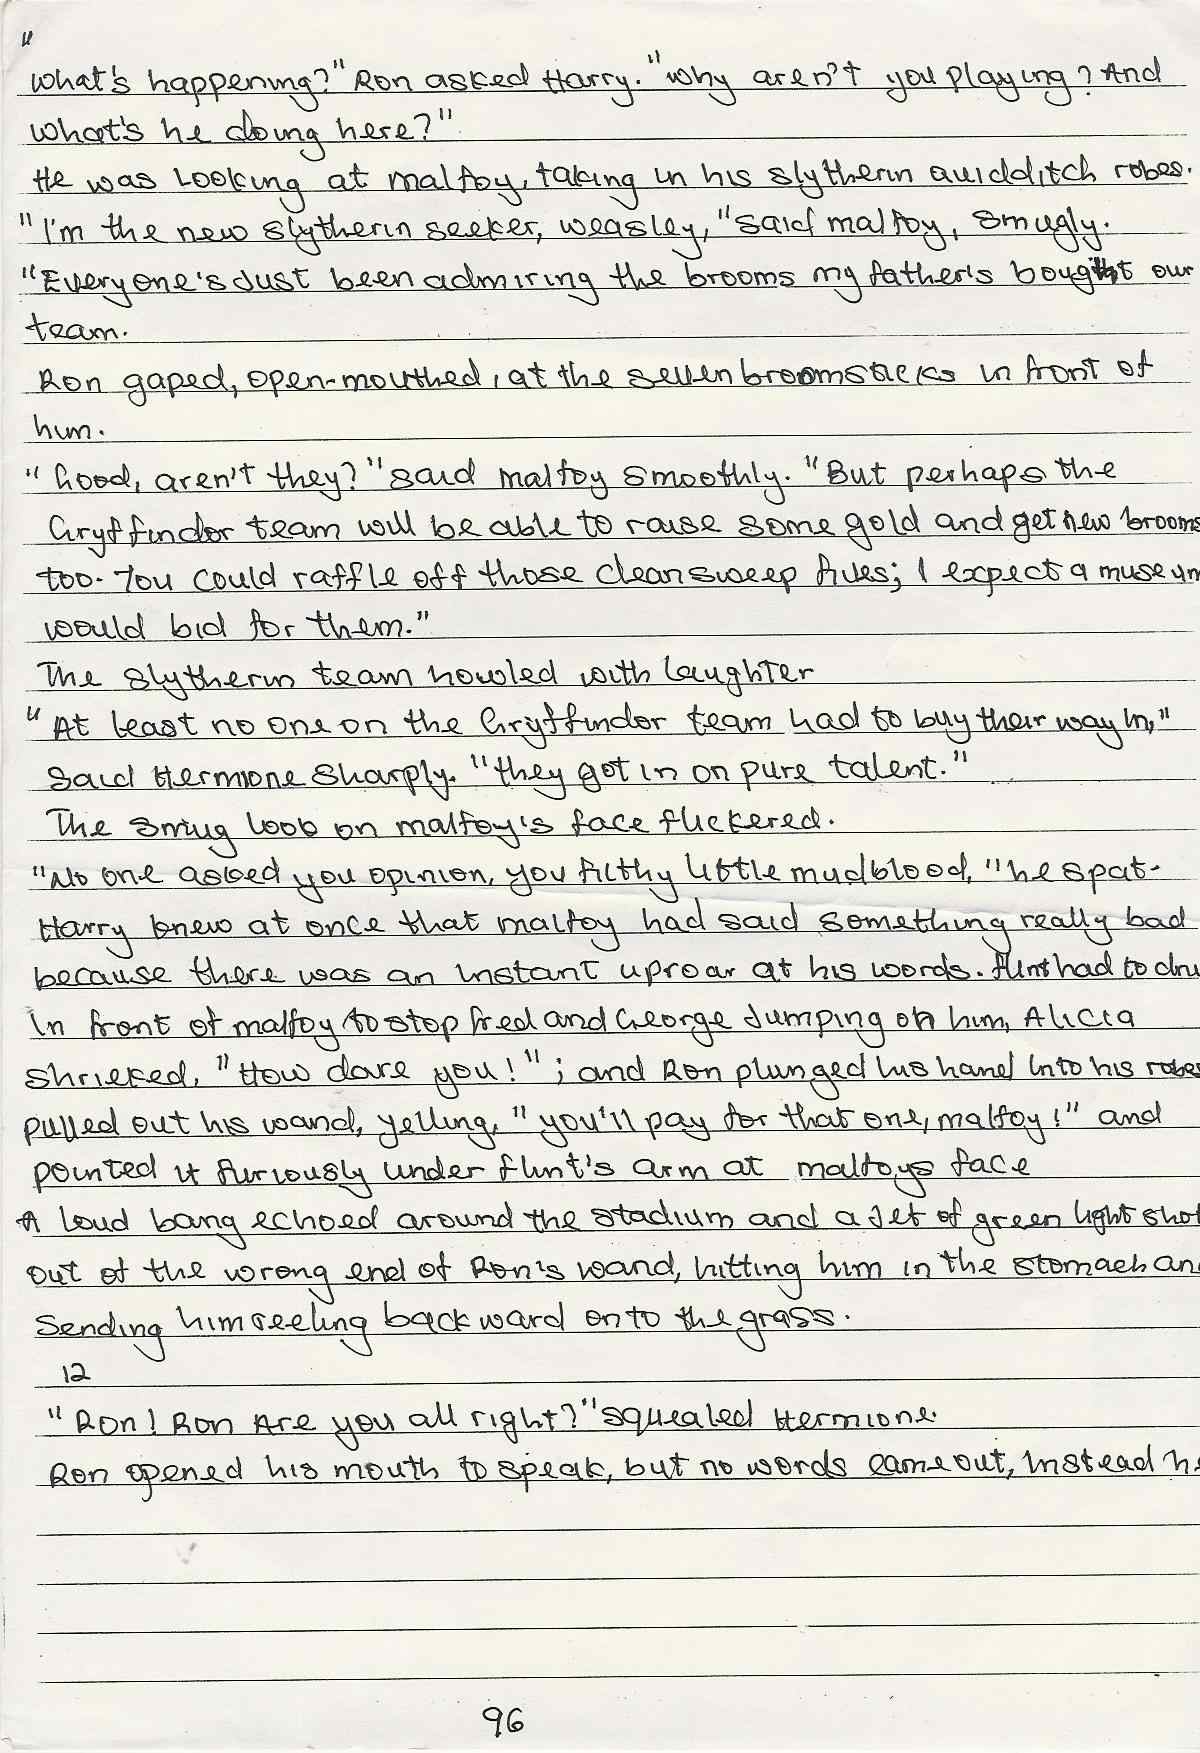 "
what's happening?" Ron asked Harry. "why aren't you playing? And
what's he doing here?"
He was Looking at malfoy, taking in his slytherin quidditch robes.
"I'm the new slytherin seeker, weasley, "said malfoy, smugly.
"Everyone's Just been admiring the brooms my father's bought our
team.
Ron gaped, open-mouthed, at the seven broomsticks in front of
him.
"Good, aren't they?" said malfoy smoothly. "But perhaps the
Gryffindor team will be able to raise some gold and get new brooms
too. You could raffle off those cleansweep fives; I expect a museum
would bid for them."
The slytherin team howled with laughter
"At least no one on the Gryffindor team had to buy their way in,"
said Hermione sharply. "they got in on pure talent."
The smug look on malfoy's face flickered.
"No one asked you opinion, you filthy little mudblood, "he spat.
Harry knew at once that malfoy had said something really bad
because there was an instant uproar at his words. flint had to div
in front of malfoy to stop fred and George Jumping on him, Alicia
shrieked, "How dare you!"; and Ron plunged his hand into his robes
pulled out his wand, yelling, "you'll pay for that one, malfoy!" and
pointed it furiously under flint's arm at malfoys face
A loud bang echoed around the stadium and a Jet of green light shot
out of the wrong end of Ron's wand, hitting him in the stomach and
sending him reeling backward onto the grass.
12
"Ron! Ron Are you all right?" squealed Hermione.
Ron opened his mouth to speak, but no words came out, instead he
96